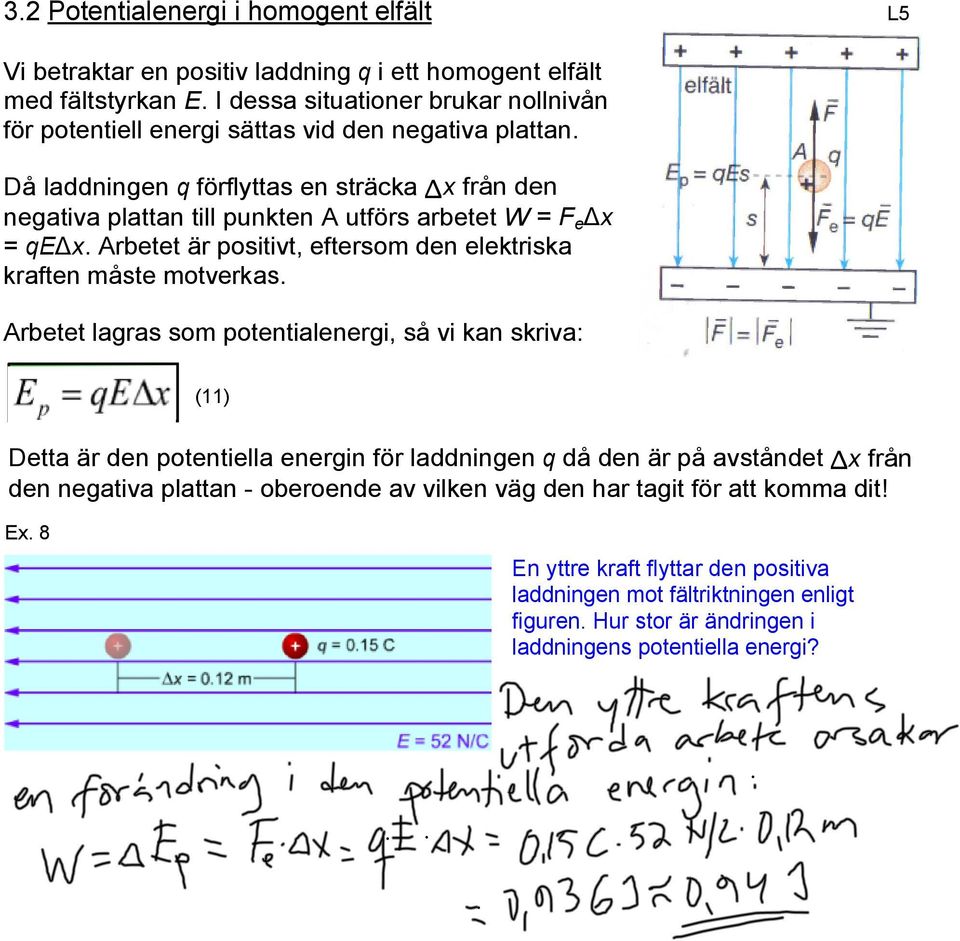 3.2 Potentialenergi i homogent elfält
L5
Vi betraktar en positiv laddning q i ett homogent elfält
med fältstyrkan E. I dessa situationer brukar nollnivån
för potentiell energi sättas vid den negativa plattan.
Då laddningen q förflyttas en sträcka Δx från den
negativa plattan till punkten A utförs arbetet W = FₑΔx
= qEΔx. Arbetet är positivt, eftersom den elektriska
kraften måste motverkas.
Arbetet lagras som potentialenergi, så vi kan skriva:
+ + + + +
elfält
F̄
A q
Eₚ = qEs
+
s
F̄ₑ = qĒ
− − − − −
|F̄| = |F̄ₑ|
Eₚ = qEΔx (11)
Detta är den potentiella energin för laddningen q då den är på avståndet Δx från
den negativa plattan - oberoende av vilken väg den har tagit för att komma dit!
Ex. 8
En yttre kraft flyttar den positiva
laddningen mot fältriktningen enligt
figuren. Hur stor är ändringen i
laddningens potentiella energi?
+ + q = 0.15 C
Δx = 0.12 m
E = 52 N/C
Den yttre kraftens
utförda arbete orsakar
en förändring i den potentiella energin:
W = ΔEₚ = Fₑ·Δx = qE·Δx = 0,15 C · 52 N/C · 0,12 m
= 0,936 J ≈ 0,94 J